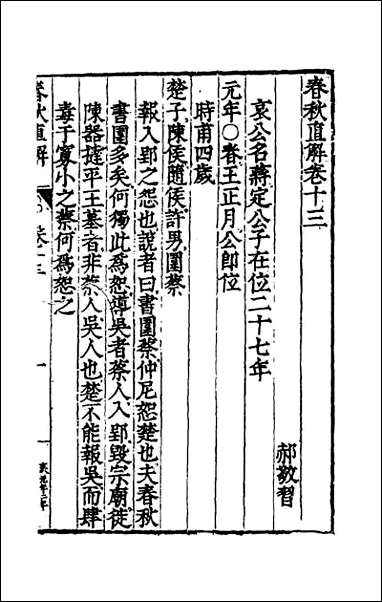 春秋直解卷十三
郝敬習
哀公名蔣定公子在位二十七年
元年○春王正月公即位
時甫四歲
楚子陳侯隨侯許男圍蔡
報入郢之怨也說者曰書圍蔡仲尼恕楚也夫春秋
書圍多矣何獨此為恕導吳者蔡人入郢毀宗廟徙
陳器撻平王墓者非蔡人吳人也楚不能報吳而肆
毒于寡小之蔡何為恕之
春秋直解
卷十三
一
哀元年二年